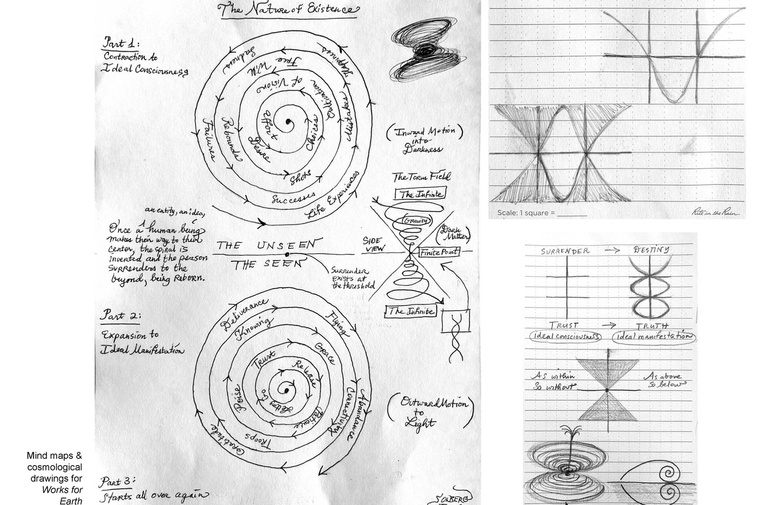 The Nature of Existence
Part 1:
Contraction to
Ideal Consciousness
Happiness
Sadness
The Will
Cultivation
of Vision
Mistakes
Choices
Effort
Desire
Rebounds
Failures
Shots
Successes
Life Experiences
(Inward Motion
into
Darkness)
The Torus Field
The Infinite
(Gravity)
(Dark
Matter)
SIDE
VIEW
Finite Point
Surrender
exists at
the threshold
The Infinite
an entity, an idea,
Once a human being
makes their way to their
center, the spiral is
inverted and the person
surrenders to the
beyond, being Reborn.
THE UNSEEN
THE SEEN
Part 2:
Expansion to
Ideal Manifestation
Deliverance
Knowing
Flying
Grace
Trust
Release
Letting Go
Patience
Praise
Hoops
Gratitude
Abundance
(Outward Motion
to
Light)
Part 3:
Starts all over again
Mind maps &
cosmological
drawings for
Works for
Earth
Scale: 1 square =
Rite in the Rain
SURRENDER → DESTINY
TRUST → TRUTH
(ideal consciousness) (ideal manifestation)
As within
So without
As above
So below